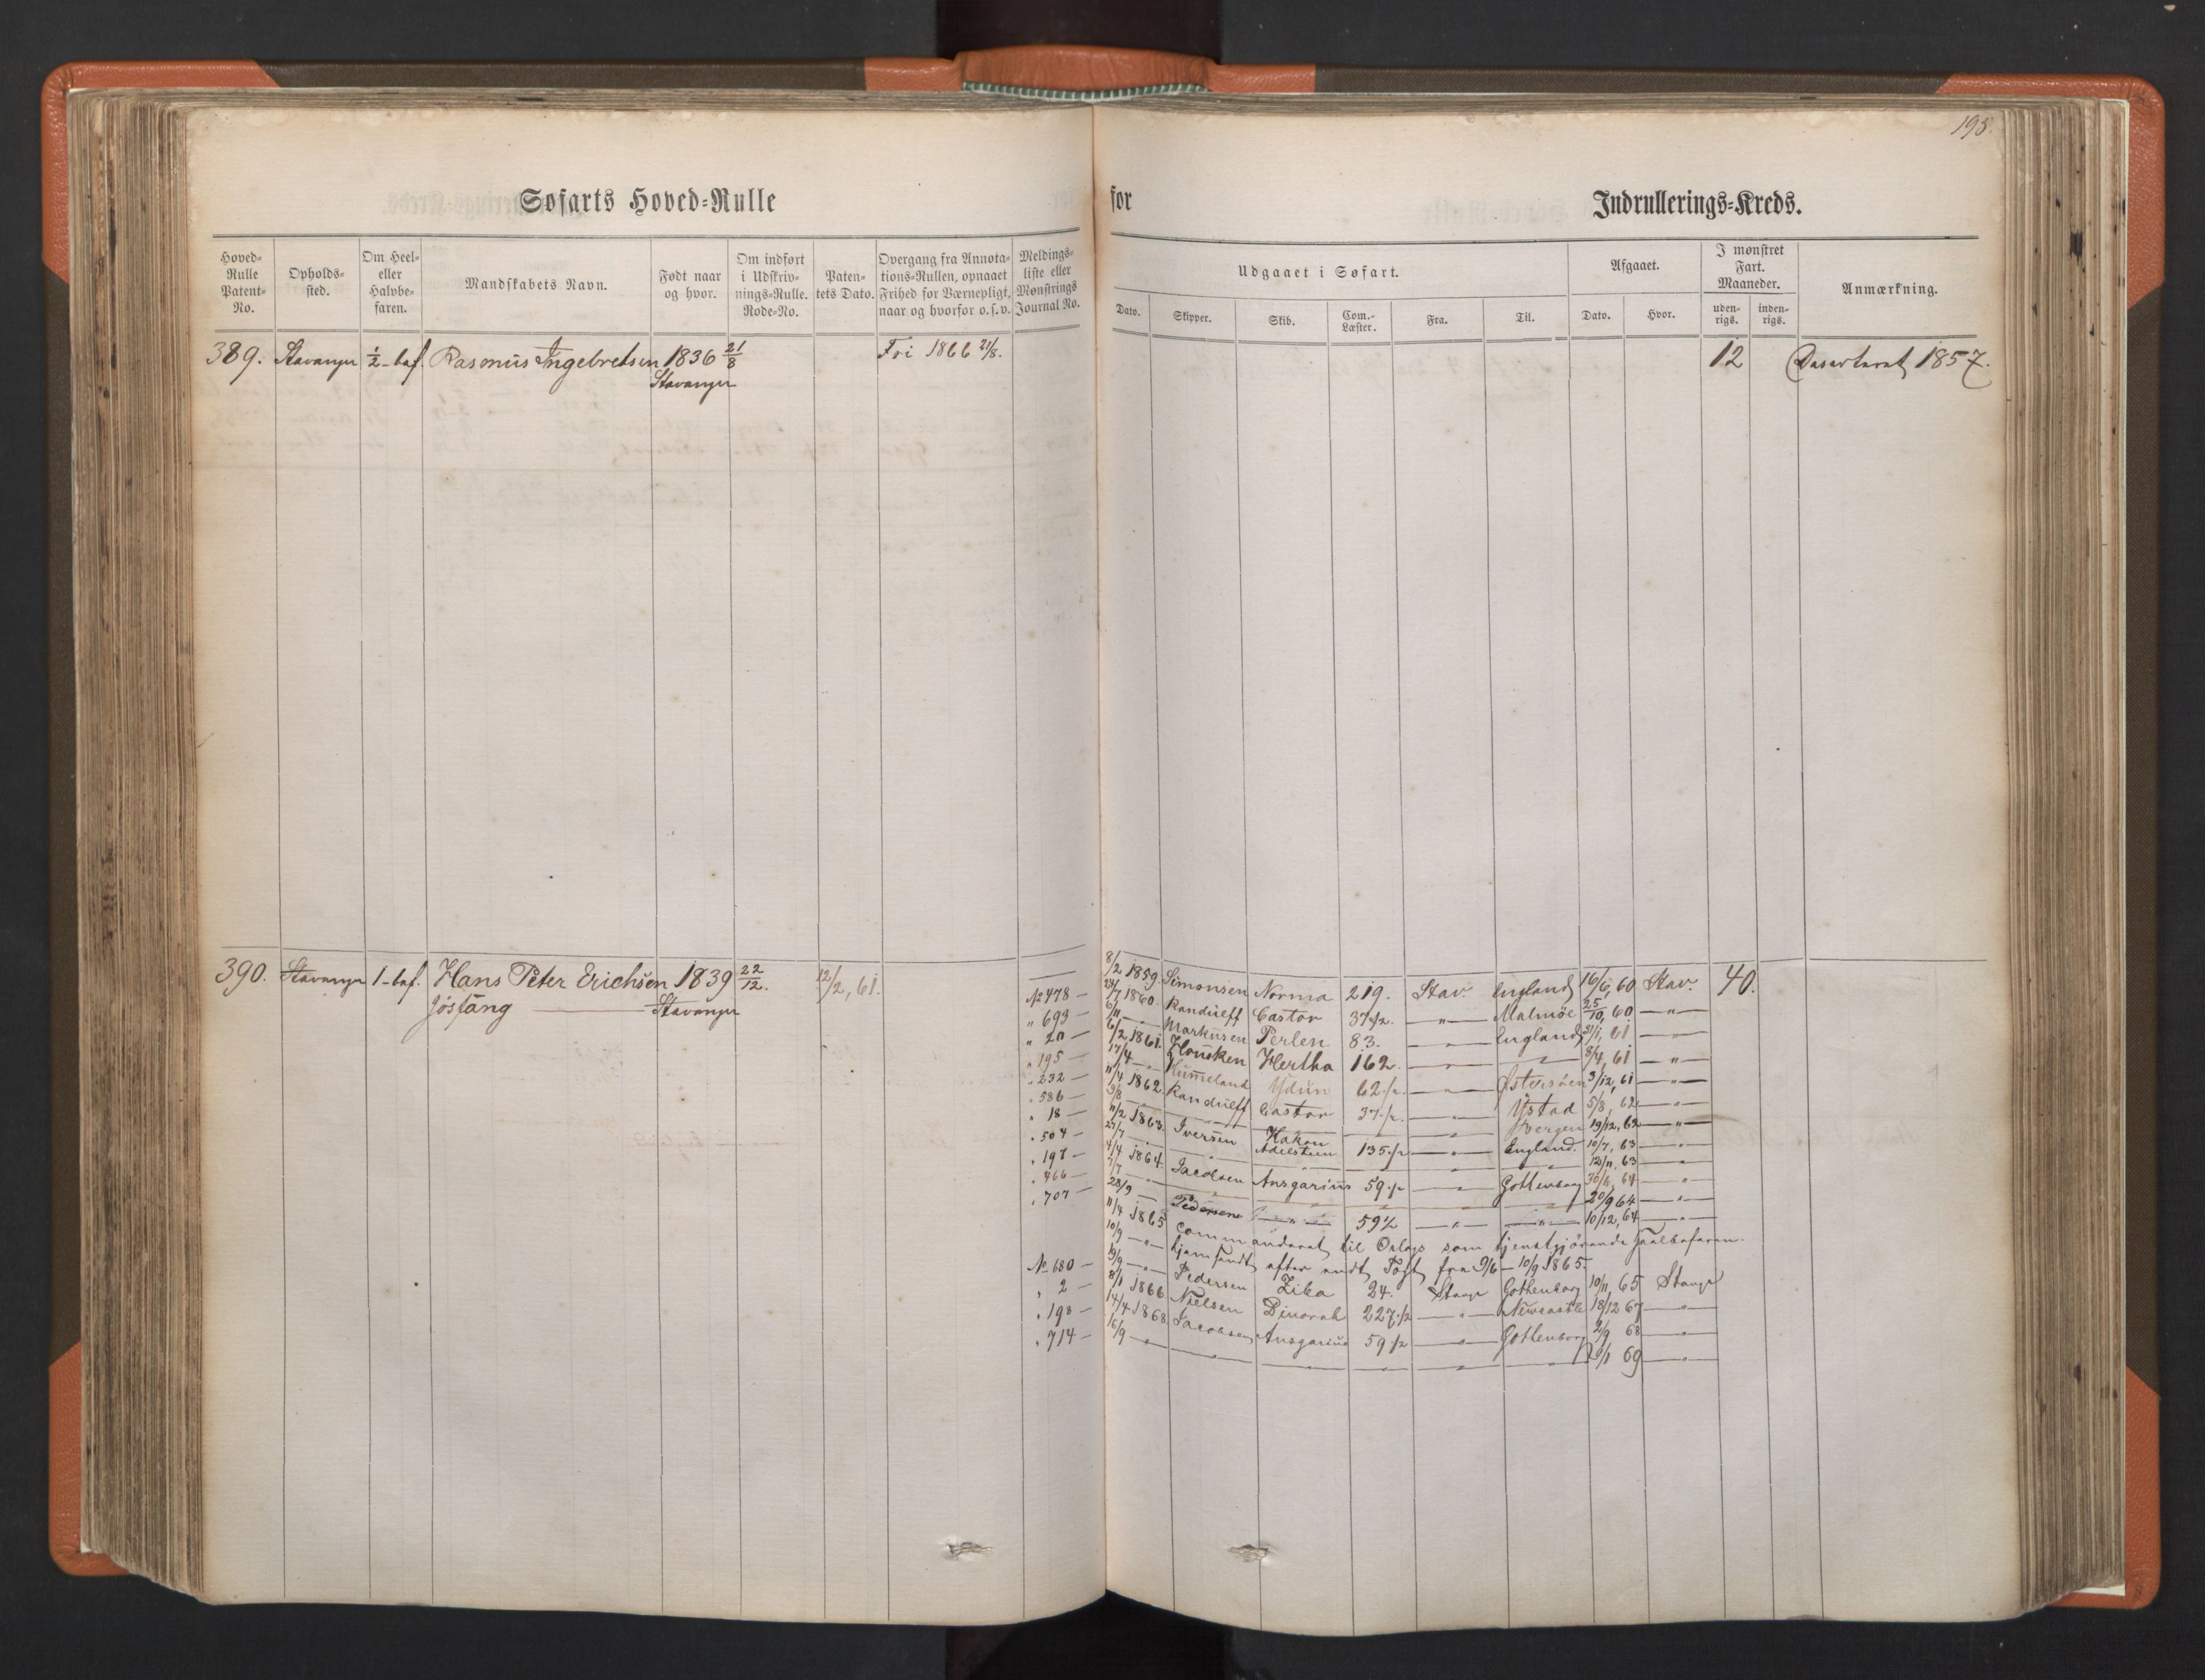 195.
Søfarts Hoved=Rulle for Indrullerings=Kreds.
Hoved=Rulle Patent=No.
Opholds=sted.
Om Heel= eller Halvbe=faren.
Mandskabets Navn.
Født naar og hvor.
Om indført i Udskriv=nings=Rulle. Rode=No.
Paten=tets Dato.
Overgang fra Annota=tions=Rullen, opnaaet Frihed for Værnepligt, naar og hvorfor o.s.v.
Meldings=liste eller Mønstrings Journal No.
Udgaaet i Søfart.
Dato. Skipper. Skib. Com.=Læster. Fra. Til.
Afgaaet.
Dato. Hvor.
I mønstret Fart. Maaneder.
uden=rigs. inden=rigs.
Anmærkning.
389. Stavanger ½-bef. Rasmus Ingebretsen 1836 21/8 Fri 1866 21/8. 12 Deserteret 1857.
Stavanger
390. Stavanger 1-bef. Hans Peter Erichsen 1839 22/12. 12/2, 61.
Jösfang Stavanger
8/2 1859. Simonsen Norma 219. Stav. England 16/6, 60 Stav. 40.
No 478 — 24/7 1860. Randulff Castor 37½. — " — Malmöe 25/10, 60 — " —
" 693 — 6/11 — Markusen Perlen 83. — " — England 31/1, 61 — " —
" 20 — 6/2 1861. Housken Hertha 162. — " — — " — 8/4, 61 — " —
" 195 — 17/4 — " Hummeland Ydun 62½. — " — Østersöen 3/12, 61 — " —
" 232 — 11/4 1862. Randulff Castor 37½. — " — Ystad 5/8, 62 — " —
" 586 — 9/8 — — " — Bergen 19/12, 62 — " —
" 18 — 11/2 1863. Iversen Hakon Adelsteen 135½ — " — England. 10/7, 63 — " —
" 504 — 27/7 — " — 12/11, 63 — " —
" 197 — 4/4 1864. Jacobsen Ansgarius 59½ — " — Gottenborg 30/6, 64 — " —
" 466 — 7/7 — " — 20/9 64 — " —
" 707 — 28/9 — Pedersen — " — 59½ — " — — " — 10/12, 64 — " —
11/4 1865 Commanderet til Orlogs som tjenstgjörende heelbefaren.
10/9 — " — hjemsendt efter endt Togt fra 9/6 — 10/9 1865.
No 680 — 19/9 — " — Pedersen Ziba 24. Stavgr Gothenborg 10/11, 65 Stavgr
" 2 — 8/1 1866. Nielsen Dinorah 227½ — " — Newcastle 18/12 67 — " —
" 198 — 14/4 1868. Jacobsen Ansgarius 59½ — " — Gottenborg 2/9 68 — " —
" 714 — 16/9 — " — — " — — " — — " — — " — 69 — " —